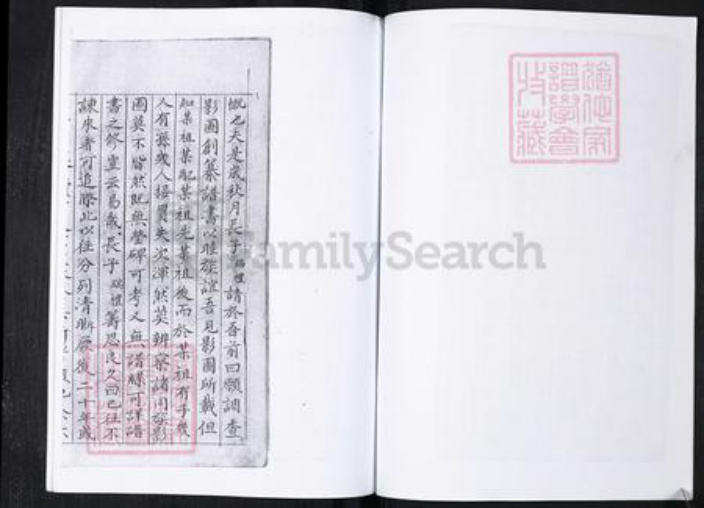 慨也夫是歲秋月長子瑞禮請於吾前曰願調查
影圖創纂譜書以睦族誼吾見影圖所載但
知某祖某配某祖先某祖後而於某祖有子幾
人有孫幾人接買失次渾然莫辨案諸同族影
圖莫不皆然既無塋碑可考又無譜牒可詳譜
書之修豈云易哉長子瑞禮籌思良久曰已往不
諫來者可追際此以往分列清晰厥後二十年或
FamilySearch
譜學會
藏